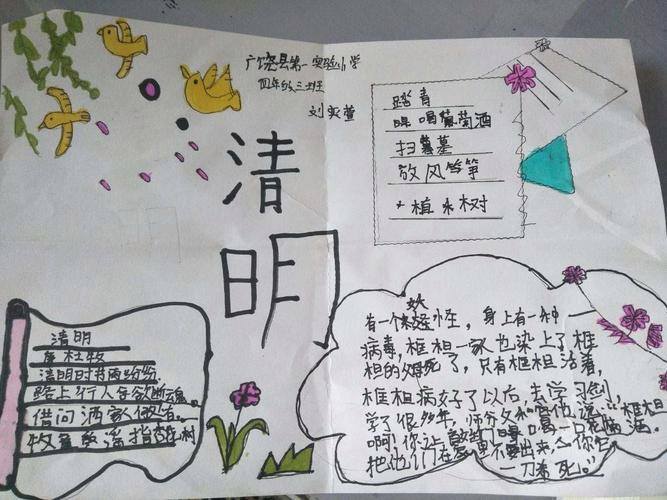 广饶县第一实验小学
四年级三班
刘奕萱
清明
踏青
喝葡萄酒
扫墓
放风筝
植树
清明
杜牧
清明时节雨纷纷
路上行人欲断魂
借问酒家
牧童遥指杏花村
有一个妖怪,身上有一种
病毒,桓桓一家也染上了,桓
桓的父母死了,只有桓桓活着,
桓桓病好了以后,去学习剑,
学了很多年,师父告他说:“桓桓
啊,你让喝一口酒。
把他们在出来,你
一刀杀死。”